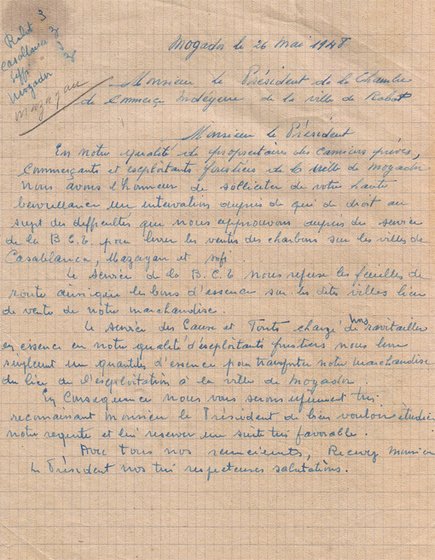 Rabat 3
Casablanca 3
Saffi 3
Mogador 3
mazagan
Mogador le 26 Mai 1948
Monsieur le Président de la Chambre
de Commerce Indégene de la ville de Rabat
Monsieur le Président
En notre qualité de propriétaires des camions privés,
Commerçants et exploitants forestiers de la ville de Mogador
Nous avons l'honneur de solliciter de votre haute
bienveillance un intervention auprès de qui de droit au
sujet des difficultés que nous epprouvons auprès du service
de la B.C.E pour livrer les ventes des charbons sur les villes de
Casablanca, Mazagan et safi
Le Service de la B.C.E nous refuse les feuilles de
route ainsi que le bons d'essence sur les dits villes lieu
de vente de notre marchandise.
Le service des Eaux et Forêts chargé de nous ravitailler
en essence en notre qualité d'exploitants forestiers nous livre
seulement un quantité d'essence pour transporter notre marchandise
du lieu de l'exploitation à la ville de Mogador.
En Consequence nous vous serons infiniment très
reconnaissant Monsieur le Président de bien vouloir étudier
notre requete et lui reserver un suite très favorable.
Avec tous nos remerciements, Recevez Monsieur
le Président nos très respectueuses salutations.